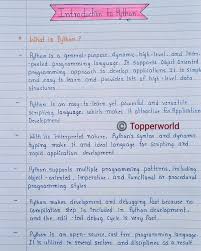 Introduction to Python
What is Python?
Python is a general-purpose, dynamic, high-level and inter-
preted programming language. It supports Object Oriented
programming approach to develop applications. It is simple
and easy to learn and provides lots of high-level data
structures
Python is an easy to learn yet powerful and versatile
scripting language, which makes it attractive for Application
Development
© Topperworld
With its interpreted nature, Python's syntax and dynamic
typing make it and ideal language for scripting and
rapid application development
Python supports multiple programming patterns, including
object-oriented, imperative, and functional or procedural
programming styles
Python makes development and debugging fast because no
compilation step is included in Python development,
and the edit debug cycle is very fast.
Python is an open-source and free programming language.
It is utilized in several sectors and disciplines as a result